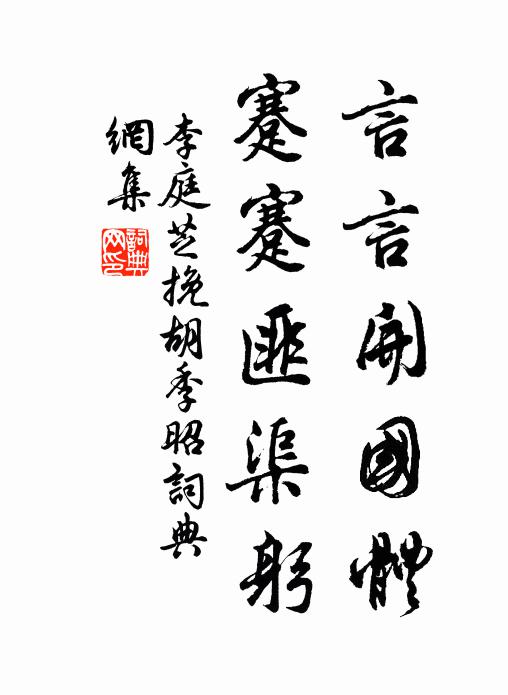 言言開國體
蹇蹇匪渠躬
李庭芝挽胡季昭詞典
網集
詞典
网印